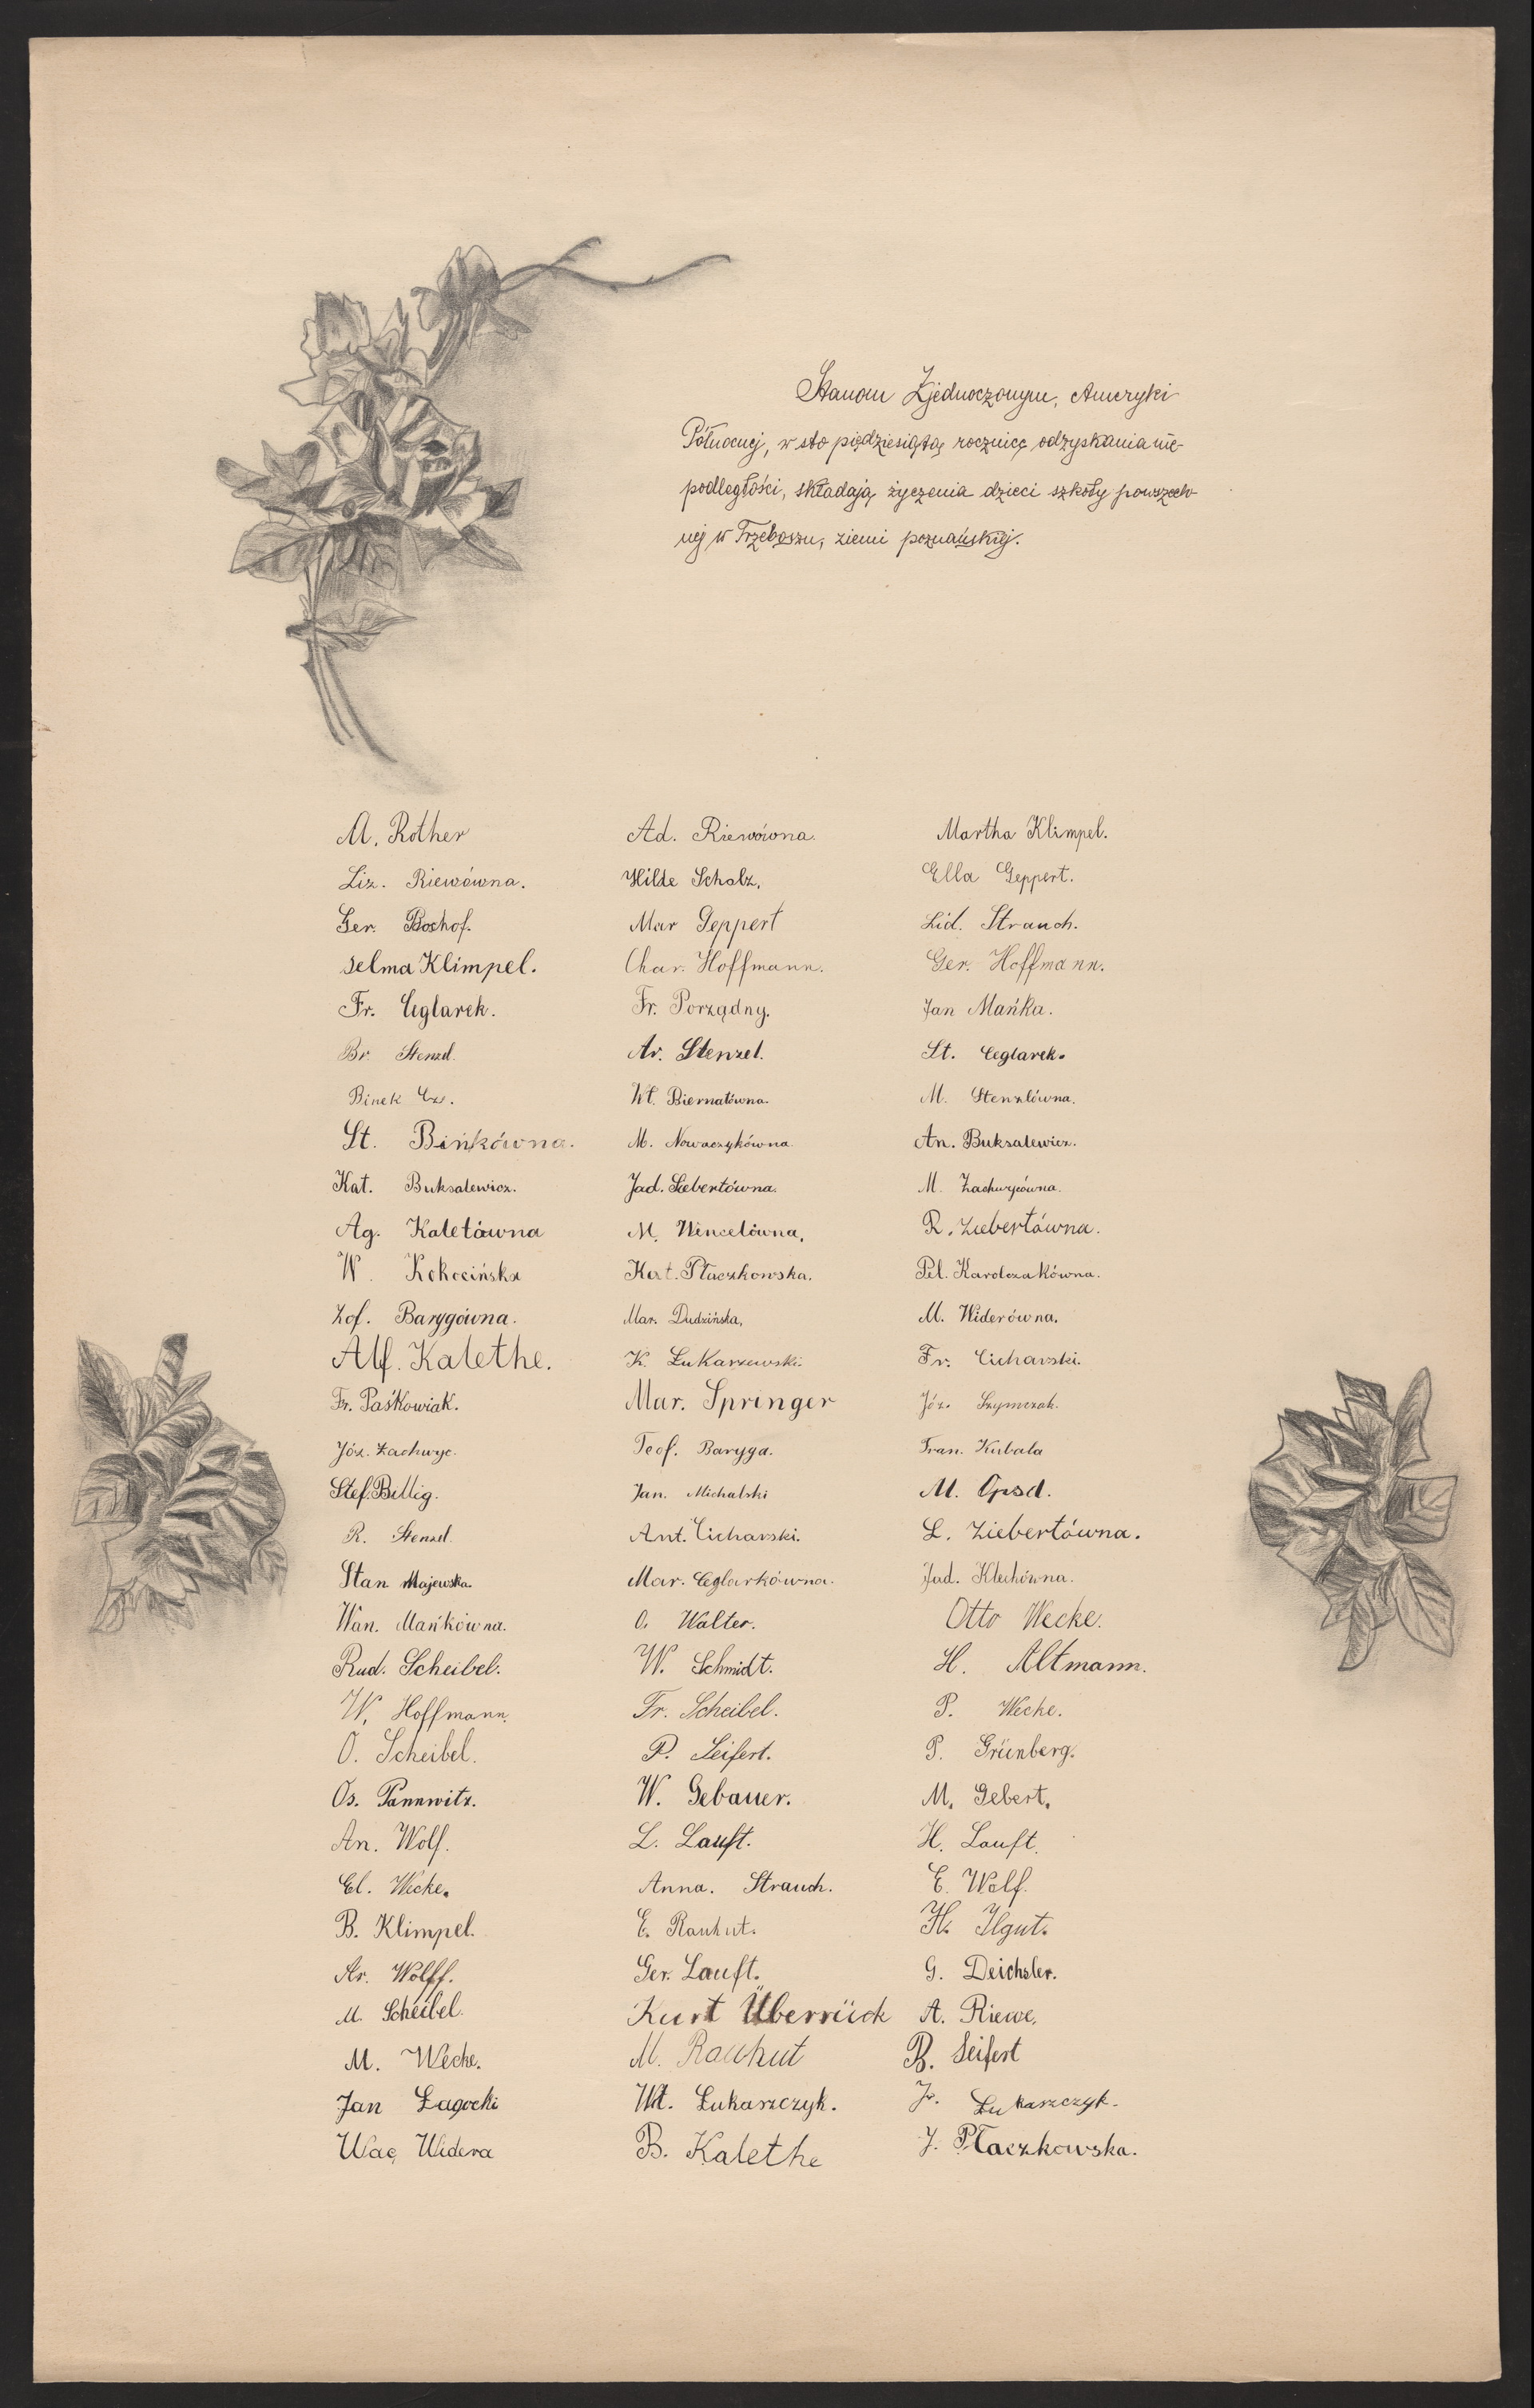 Stanom Zjednoczonym, Ameryki
Północnej, w sto piędziesiątą rocznicę odzyskania nie-
podległości, składają życzenia dzieci szkoły powszech-
nej w Trzeboszu, ziemi poznańskiej.
M. Rother Ad. Riewówna. Martha Klimpel.
Liz. Riewówna. Hilde Scholz. Ella Geppert.
Ger. Boshof. Mar Geppert Lid. Strauch.
Selma Klimpel. Char. Hoffmann. Ger. Hoffmann.
Fr. Ceglarek. Fr. Porządny. Jan Mańka.
Br. Stenzel. Ar. Stenzel. St. Ceglarek.
Binek Cz. Wł. Biernatówna. M. Stenzlówna.
St. Bińkówna. M. Nowaczykówna. An. Buksalewicz.
Kat. Buksalewicz. Jad. Liebertówna. M. Zachwycówna.
Ag. Kaletówna M. Wencelówna, R. Ziebertówna.
W. Kokocińska Kat. Płaczkowska. Pel. Karolczakówna.
Zof. Barygówna. Mar. Dudzińska, M. Widerówna.
Alf. Kalethe. K. Łukarzewski. Fr. Cicharski.
Fr. Paśkowiak. Mar. Springer Józ. Szymczak.
Józ. Zachwyc. Teof. Baryga. Fran. Kubala
Stef. Billig. Jan. Michalski M. Opsd.
R. Stenzel. Ant. Cicharski. L. Ziebertówna.
Stan Majewska. Mar. Ceglarkówna. Jad. Klechówna.
Wan. Mańkówna. O. Walter. Otto Wecke.
Rud. Scheibel. W. Schmidt. H. Altmann.
W. Hoffmann. Fr. Scheibel. P. Wecke.
O. Scheibel. P. Seifert. P. Grünberg.
Os. Pannwitz. W. Gebauer. M. Gebert.
An. Wolf. L. Lauft. H. Lauft.
El. Wecke. Anna. Strauch. E. Wolf.
B. Klimpel. E. Rauhut. H. Ilgut.
Ar. Wolff. Ger. Lauft. G. Deichsler.
M. Scheibel. Kurt Überrück A. Riewe.
M. Wecke. M. Rauhut B. Seifert
Jan Łagocki Wł. Łukarzczyk. Jr. Łukarzczyk.
Wac. Widera B. Kalethe J. Płaczkowska.